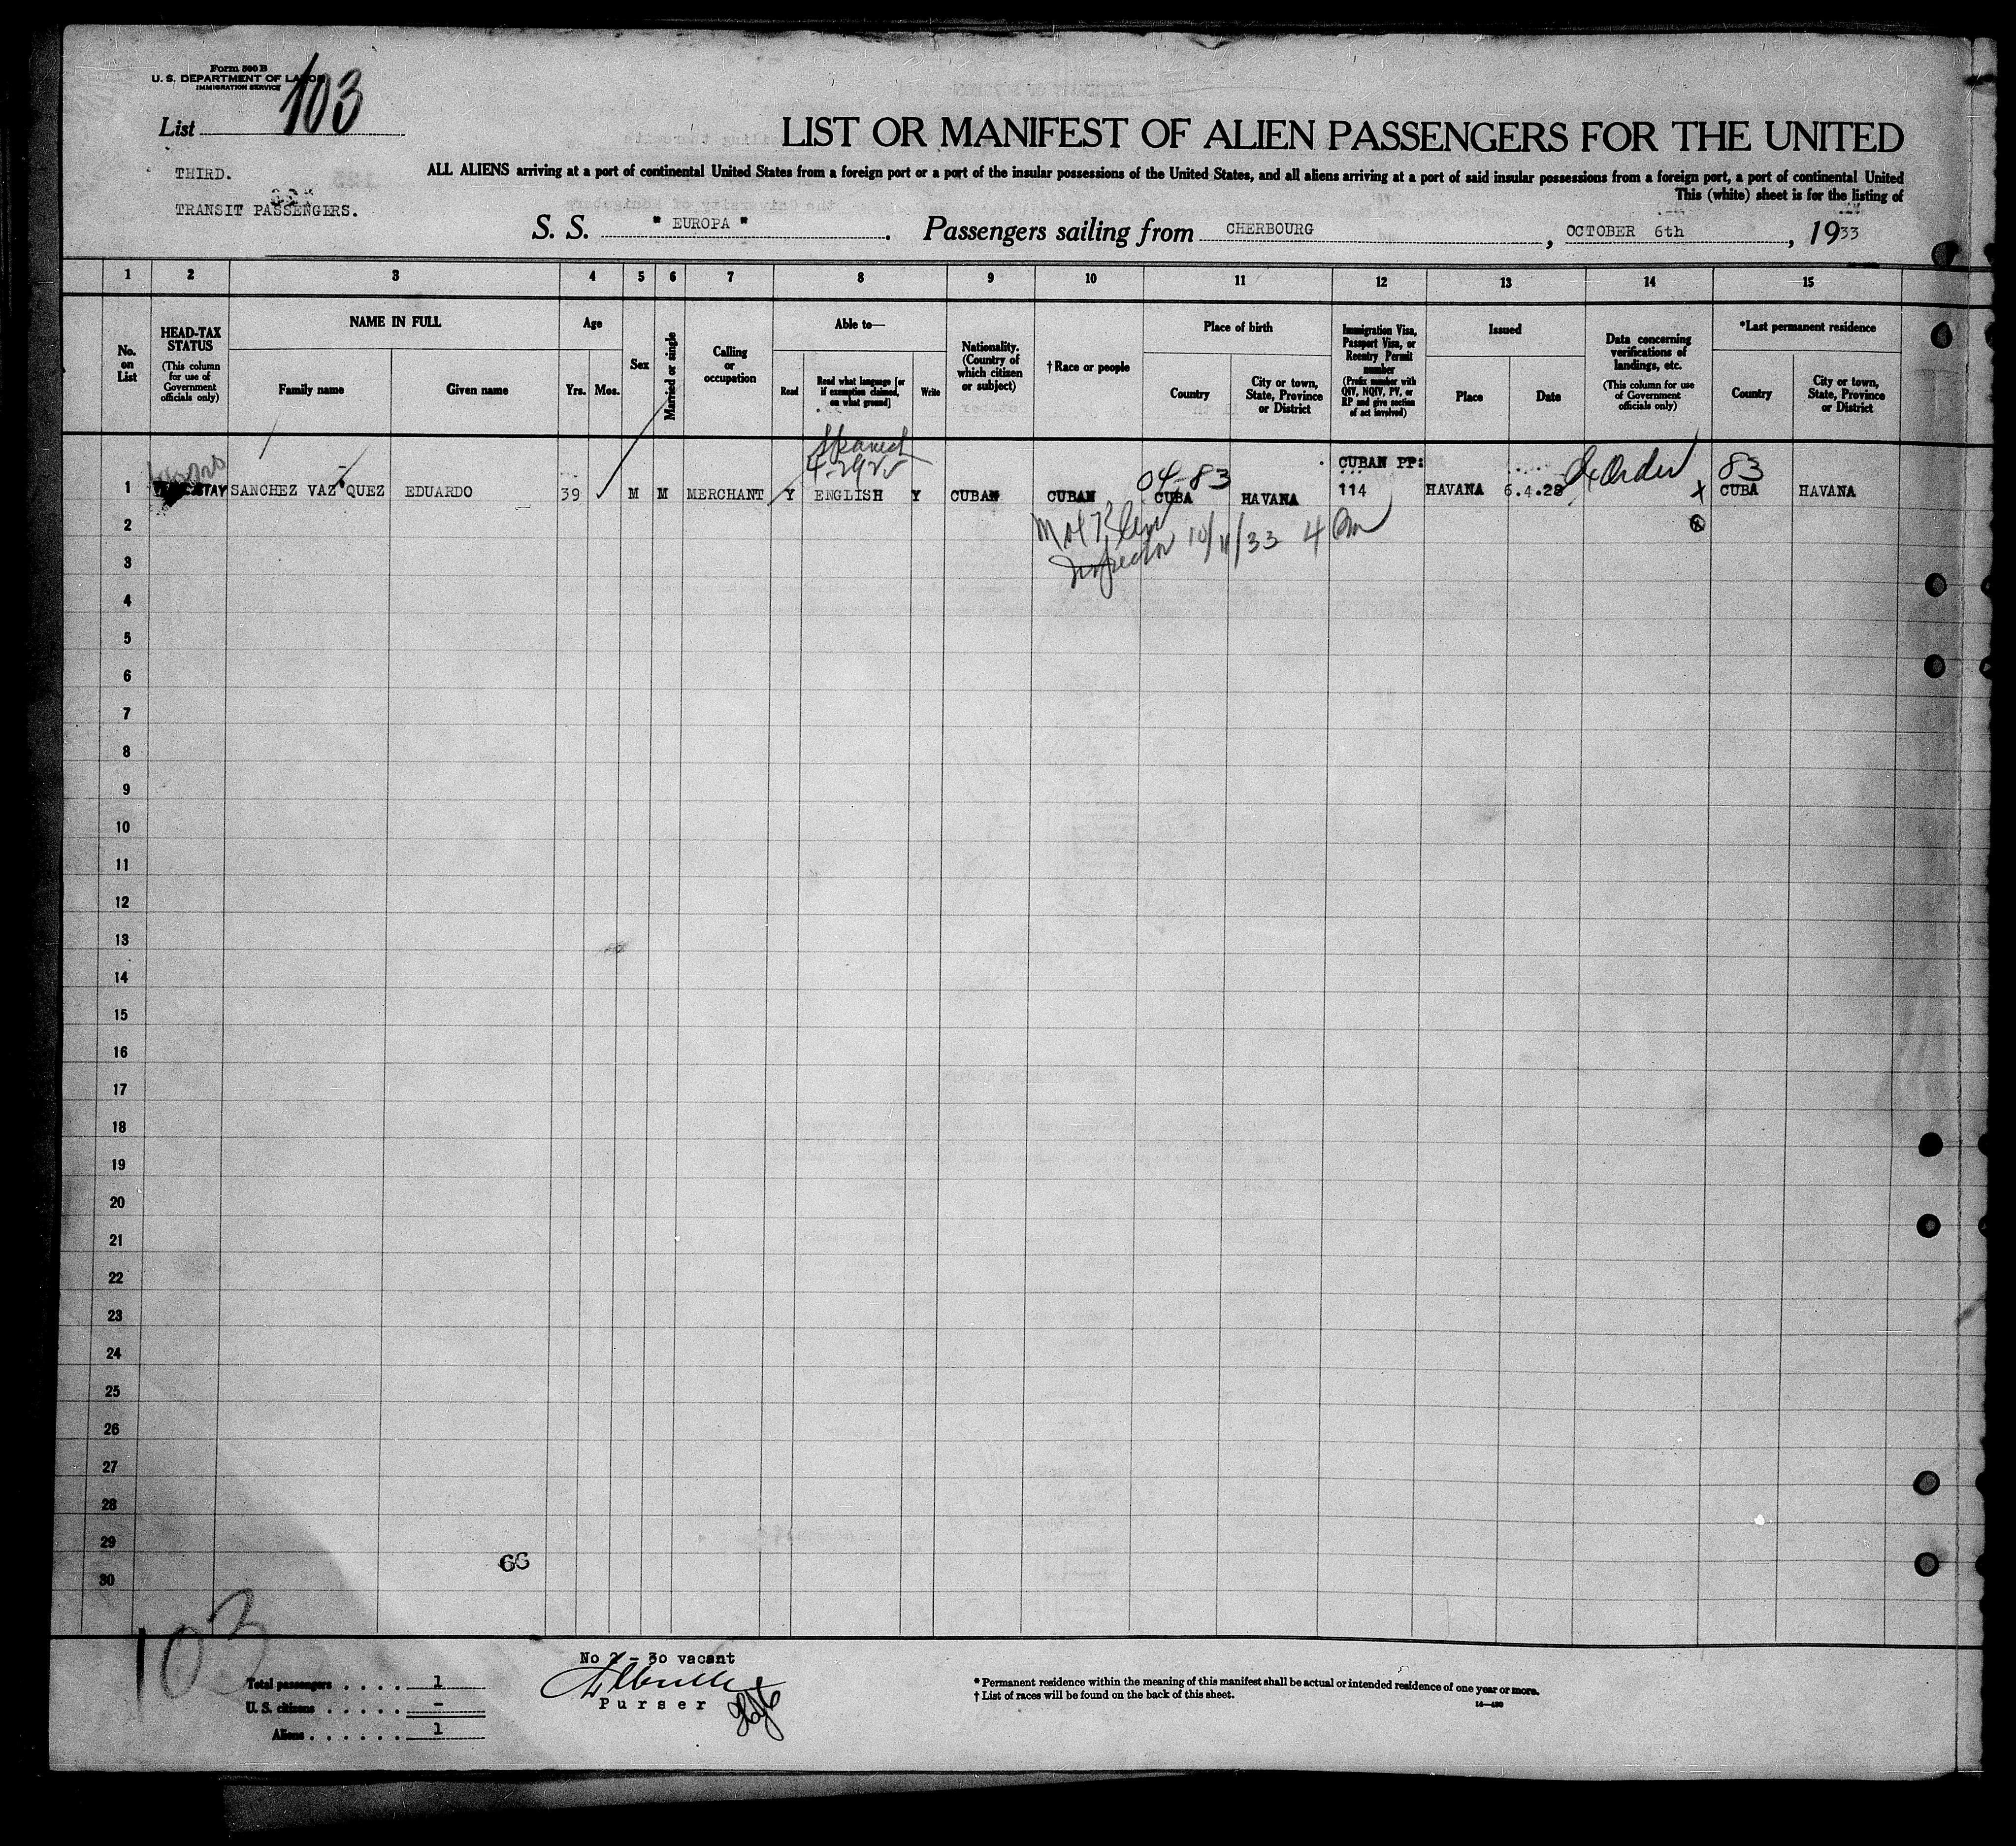 Form 500 B
U. S. DEPARTMENT OF LABOR
IMMIGRATION SERVICE
List 103
LIST OR MANIFEST OF ALIEN PASSENGERS FOR THE UNITED
THIRD.
TRANSIT PASSENGERS.
ALL ALIENS arriving at a port of continental United States from a foreign port or a port of the insular possessions of the United States, and all aliens arriving at a port of said insular possessions from a foreign port, a port of continental United
This (white) sheet is for the listing of
S. S. " EUROPA ". Passengers sailing from CHERBOURG, OCTOBER 6th, 1933
1 2 3 4 5 6 7 8 9 10 11 12 13 14 15
No. on List
HEAD-TAX STATUS
(This column for use of Government officials only)
NAME IN FULL
Family name
Given name
Age
Yrs. Mos.
Sex
Married or single
Calling or occupation
Able to—
Read
Read what language [or if exemption claimed, on what ground]
Write
Nationality. (Country of which citizen or subject)
†Race or people
Place of birth
Country
City or town, State, Province or District
Immigration Visa, Passport Visa, or Reentry Permit number
(Prefix number with QIV, NQIV, PV, or RP and give section of act involved)
Issued
Place
Date
Data concerning verifications of landings, etc.
(This column for use of Government officials only)
*Last permanent residence
Country
City or town, State, Province or District
Spanish
04-83
CUBAN PP:
83
1 STAY SANCHEZ VAZ QUEZ EDUARDO 39 M M MERCHANT Y ENGLISH Y CUBAN CUBAN CUBA HAVANA 114 HAVANA 6.4.28 X CUBA HAVANA
2
Inspector 10/11/33 4 Pm
3
4
5
6
7
8
9
10
11
12
13
14
15
16
17
18
19
20
21
22
23
24
25
26
27
28
29
66
30
103
No 2 - 30 vacant
Total passengers . . . . 1
U. S. citizens . . . . . –
Aliens . . . . . . 1
Purser
* Permanent residence within the meaning of this manifest shall be actual or intended residence of one year or more.
† List of races will be found on the back of this sheet.
14—430